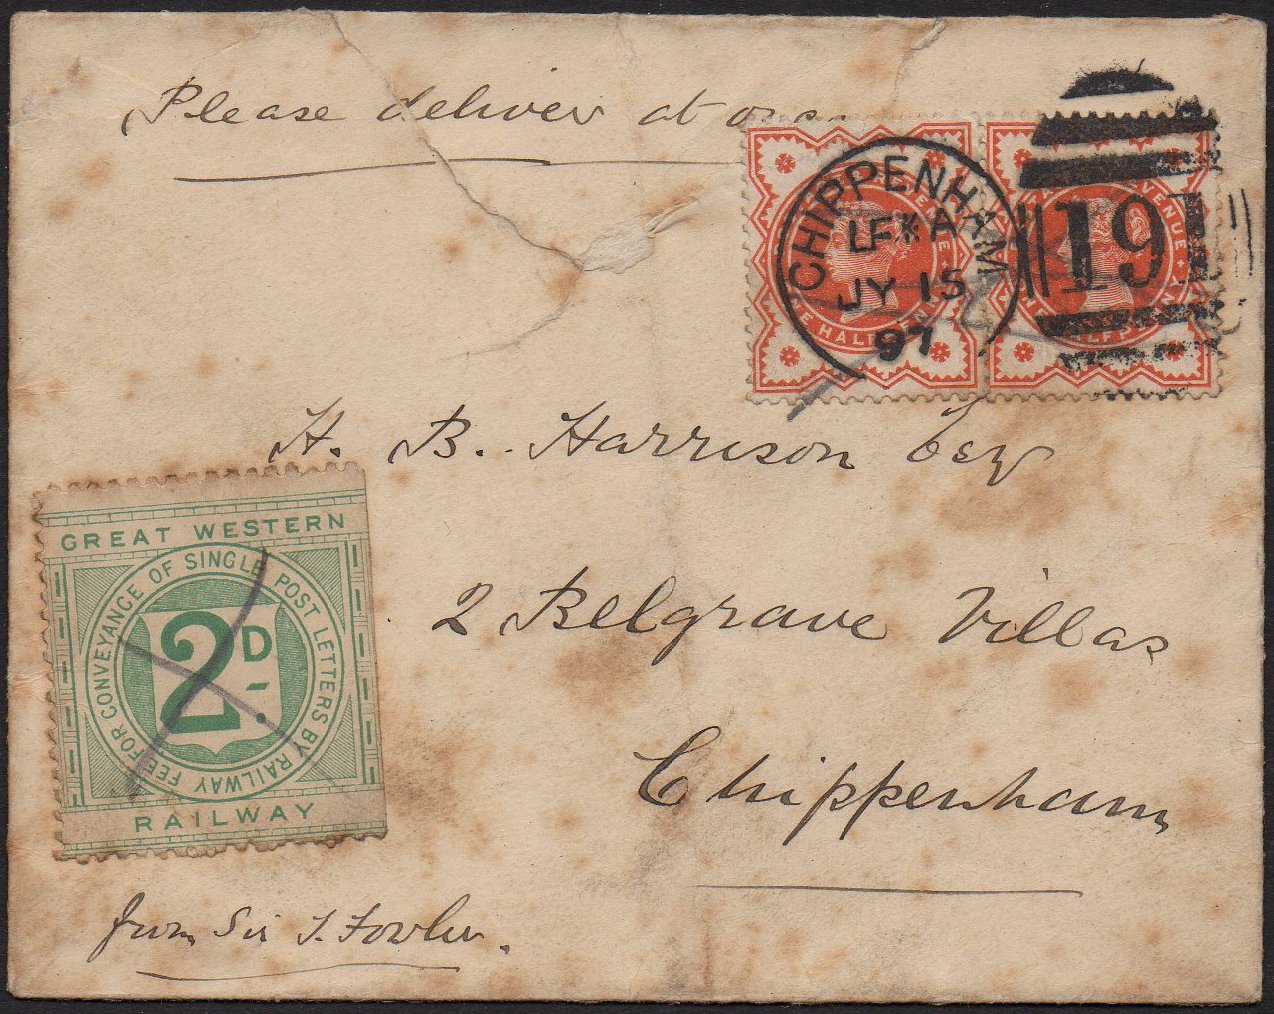 Please deliver at once
CHIPPENHAM
LE*A
JY 15
97
191
H. B. Harrison Esq
2 Belgrave Villas
Chippenham
GREAT WESTERN
FEE FOR CONVEYANCE OF SINGLE POST LETTERS BY RAILWAY
2D
RAILWAY
from Sir J. Fowler.